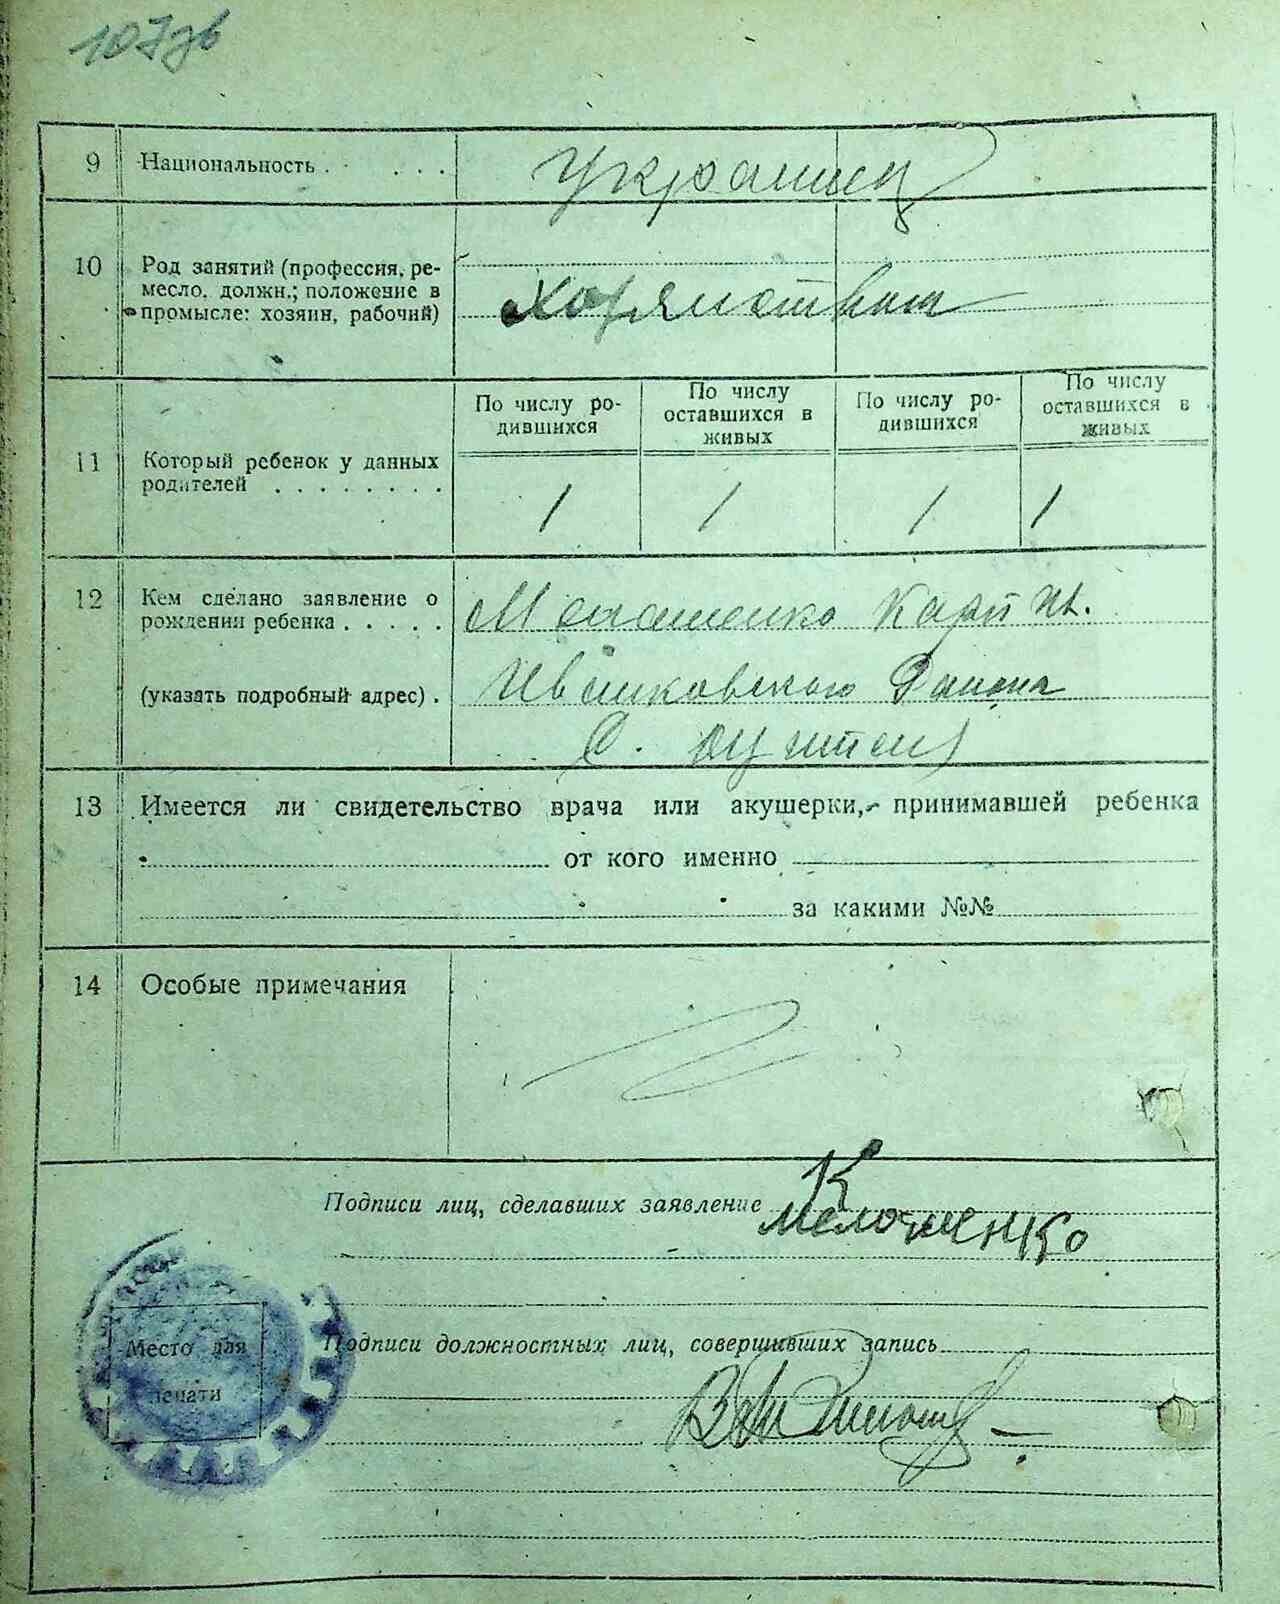 107 зв
9 Национальность . . . . . украинец
10 Род занятий (профессия, ре-
месло, должн.; положение в
промысле: хозяин, рабочий)
11 Который ребенок у данных
родителей . . . . . . . .
По числу ро-
дившихся
По числу
оставшихся в
живых
По числу ро-
дившихся
По числу
оставшихся в
живых
1 1 1 1
12 Кем сделано заявление о
рождении ребенка . . . . .
Карп Ив.
(указать подробный адрес) .
Иванковского Района
с.
13 Имеется ли свидетельство врача или акушерки, принимавшей ребенка
от кого именно
за какими №№
14 Особые примечания
Подписи лиц, сделавших заявление К
Место для
печати
Подписи должностных лиц, совершивших запись